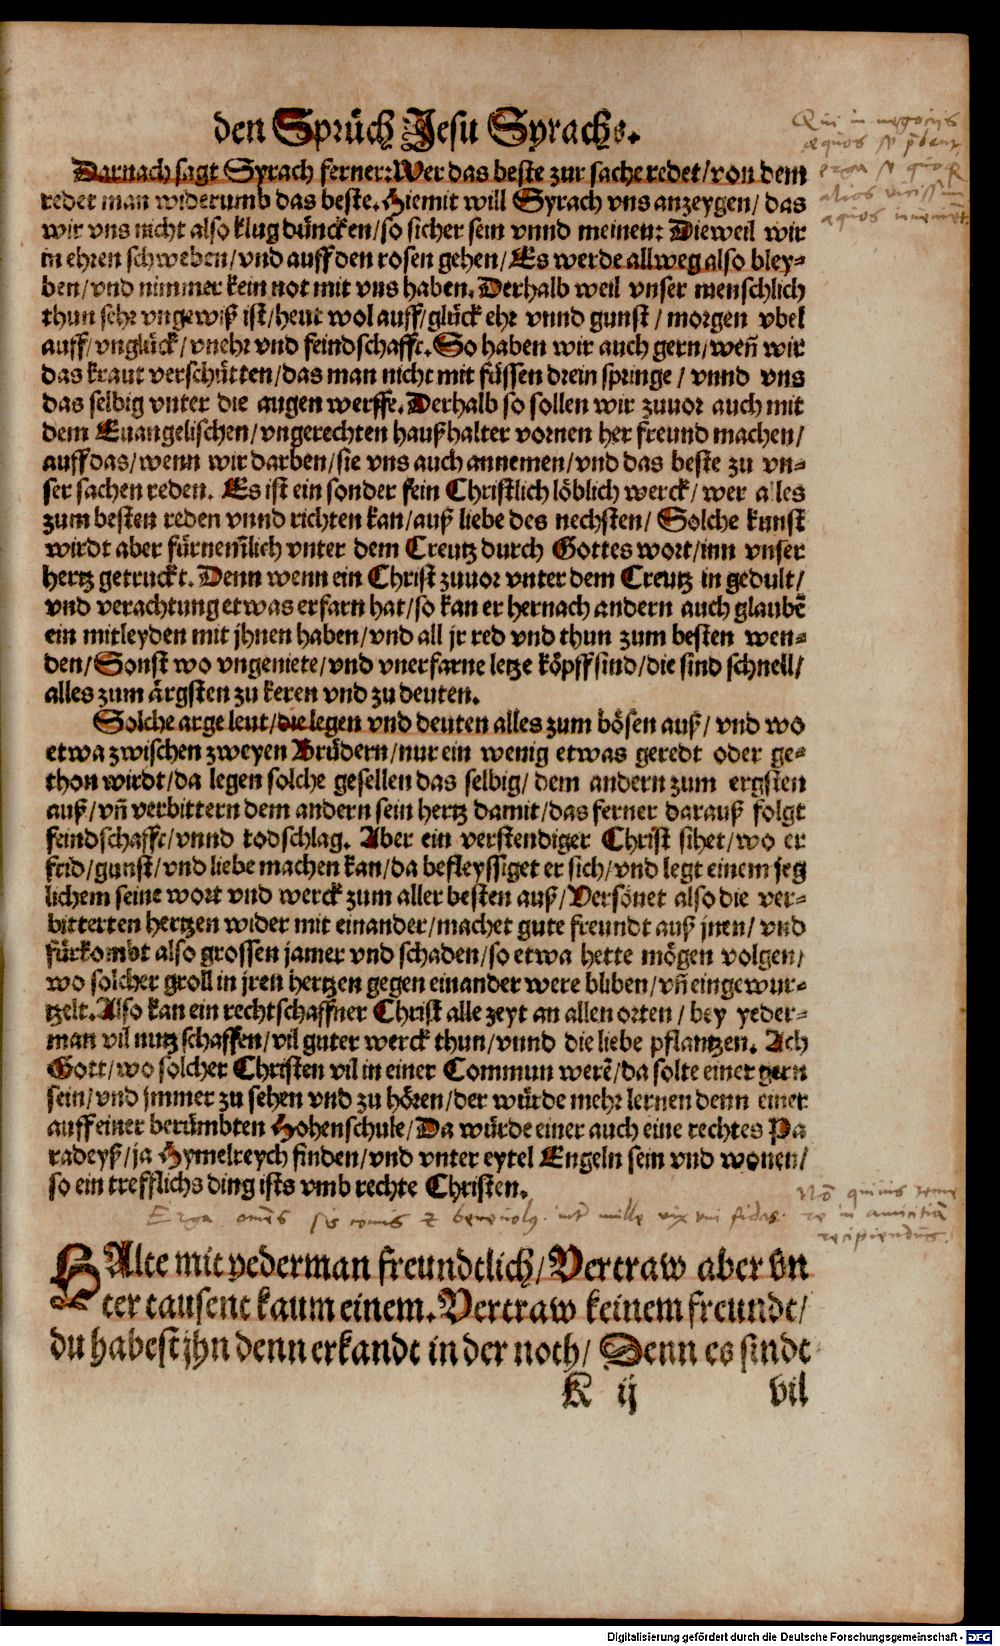 den Sprüch Jesu Syrachs.
Darnach sagt Syrach ferner: Wer das beste zur sache redet/von dem
redet man widerumb das beste. Hiemit will Syrach vns anzeygen/ das
wir vns nicht also klug düncken/so sicher sein vnnd meinen: Dieweil wir
in ehren schweben/vnd auff den rosen gehen/ Es werde allweg also bley-
ben/vnd nimmer kein not mit vns haben. Derhalb weil vnser menschlich
thun sehr vngewiß ist/heut wol auff/glück ehr vnnd gunst / morgen vbel
auff/vnglück/vnehr vnd feindschafft. So haben wir auch gern/weñ wir
das kraut verschütten/das man nicht mit füssen drein springe / vnnd vns
das selbig vnter die augen werffe. Derhalb so sollen wir zuuor auch mit
dem Euangelischen/vngerechten haußhalter vornen her freund machen/
auff das/wenn wir darben/sie vns auch annemen/vnd das beste zu vn-
ser sachen reden. Es ist ein sonder fein Christlich löblich werck/wer alles
zum besten reden vnnd richten kan/auß liebe des nechsten/ Solche kunst
wirdt aber fürnem̃lich vnter dem Creutz durch Gottes wort/inn vnser
hertz getruckt. Denn wenn ein Christ zuuor vnter dem Creutz in gedult/
vnd verachtung etwas erfarn hat/so kan er hernach andern auch glaubẽ
ein mitleyden mit jhnen haben/vnd all jr red vnd thun zum besten wen-
den/Sonst wo vngeniete/vnd vnerfarne letze köpff sind/die sind schnell/
alles zum ärgsten zu keren vnd zu deuten.
Solche arge leut/die legen vnd deuten alles zum bösen auß/ vnd wo
etwa zwischen zweyen Brüdern/nur ein wenig etwas geredt oder ge-
thon wirdt/da legen solche gesellen das selbig/ dem andern zum ergsten
auß/vñ verbittern dem andern sein hertz damit/das ferner darauß folgt
feindschafft/vnnd todschlag. Aber ein verstendiger Christ sihet/wo er
frid/gunst/vnd liebe machen kan/da befleyssiget er sich/vnd legt einem jeg
lichem seine wort vnd werck zum aller besten auß/Versönet also die ver-
bitterten hertzen wider mit einander/machet gute freundt auß jnen/ vnd
fürkombt also grossen jamer vnd schaden/so etwa hette mögen volgen/
wo solcher groll in jren hertzen gegen einander were bliben/vñ eingewur-
tzelt. Also kan ein rechtschaffner Christ alle zeyt an allen orten / bey yeder-
man vil nutz schaffen/vil guter werck thun/vnnd die liebe pflantzen. Ach
Gott/wo solcher Christen vil in einer Commun werẽ/da solte einer gern
sein/vnd jmmer zu sehen vnd zu hören/der würde mehr lernen denn einer
auff einer berümbten Hohenschule/Da würde einer auch eine rechtes Pa
radeyß/ja Hymelreych finden/vnd vnter eytel Engeln sein vnd wonen/
so ein trefflichs ding ists vmb rechte Christen.
Erga omẽs sis comis
mille vix vni fidas.
HAlte mit yederman freundtlich/Vertraw aber vn
ter tausent kaum einem. Vertraw keinem freundt/
du habest jhn denn erkandt in der noth/ Denn es sindt
K ij vil
Qui in negociis
erga
alios vicissim
in amicitiã
recipiendus.
Digitalisierung gefördert durch die Deutsche Forschungsgemeinschaft - DFG